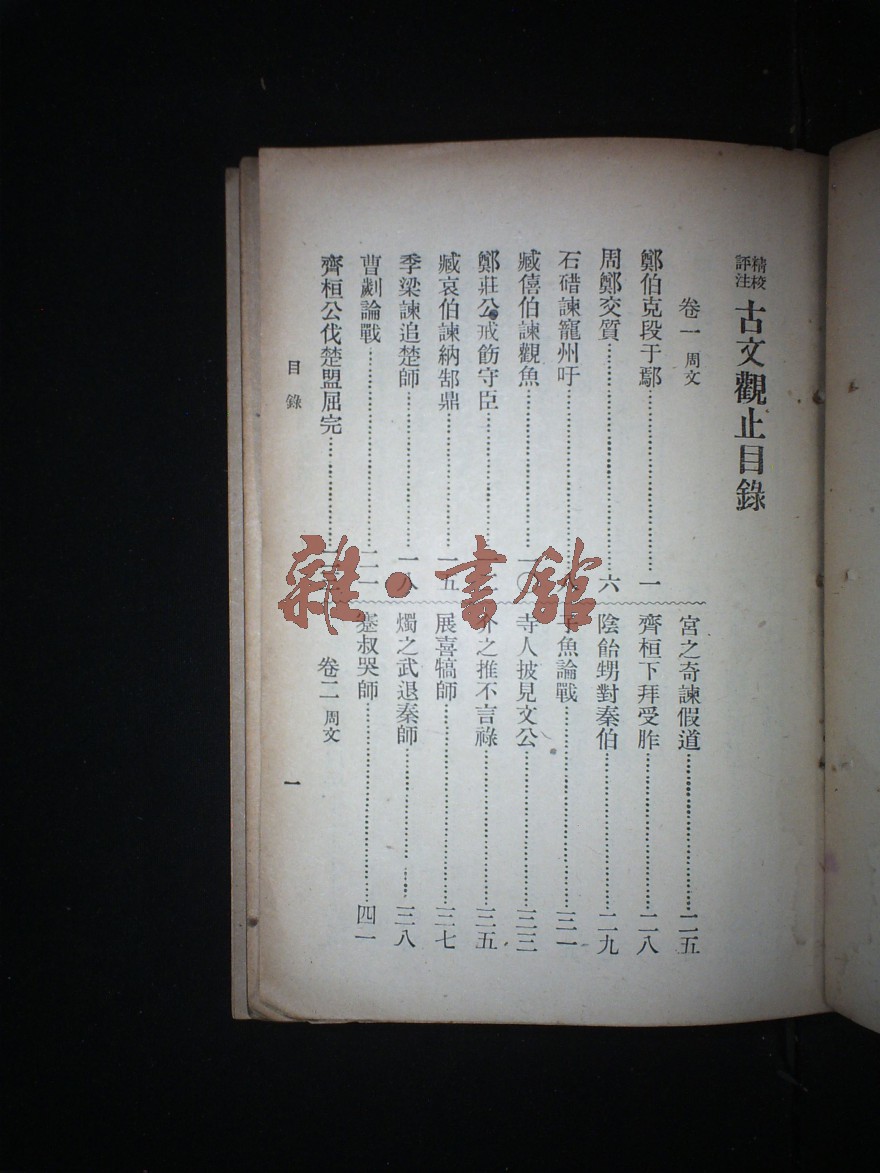 精校評注 古文觀止目錄
卷一 周文
鄭伯克段于鄢 一
周鄭交質 六
石碏諫寵州吁
臧僖伯諫觀魚 一〇
鄭莊公戒飭守臣
臧哀伯諫納郜鼎 一五
季梁諫追楚師 一八
曹劌論戰 二一
齊桓公伐楚盟屈完
宮之奇諫假道 二五
齊桓下拜受胙 二八
陰飴甥對秦伯 二九
魚論戰 三一
寺人披見文公 三三
介之推不言祿 三五
展喜犒師 三七
燭之武退秦師 三八
蹇叔哭師 四一
卷二 周文
目錄
一
雜·書館